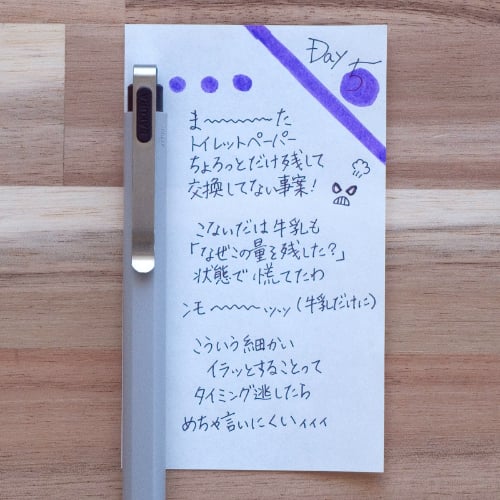 Day 5
ま〜〜〜〜〜た
トイレットペーパー
ちょろっとだけ残して
交換してない事案!
こないだは牛乳も
「なぜこの量を残した?」
状態で慌ててたわ
ンモ〜〜〜〜ッッッ(牛乳だけに)
こういう細かい
イラッとすることって
タイミング逃したら
めちゃ言いにくいィィィ